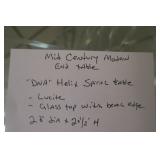 Mid Century Modern
End table
"DNA" Helix Spiral table
- Lucite
- Glass top with bevel edge
28" dia x 20½" H